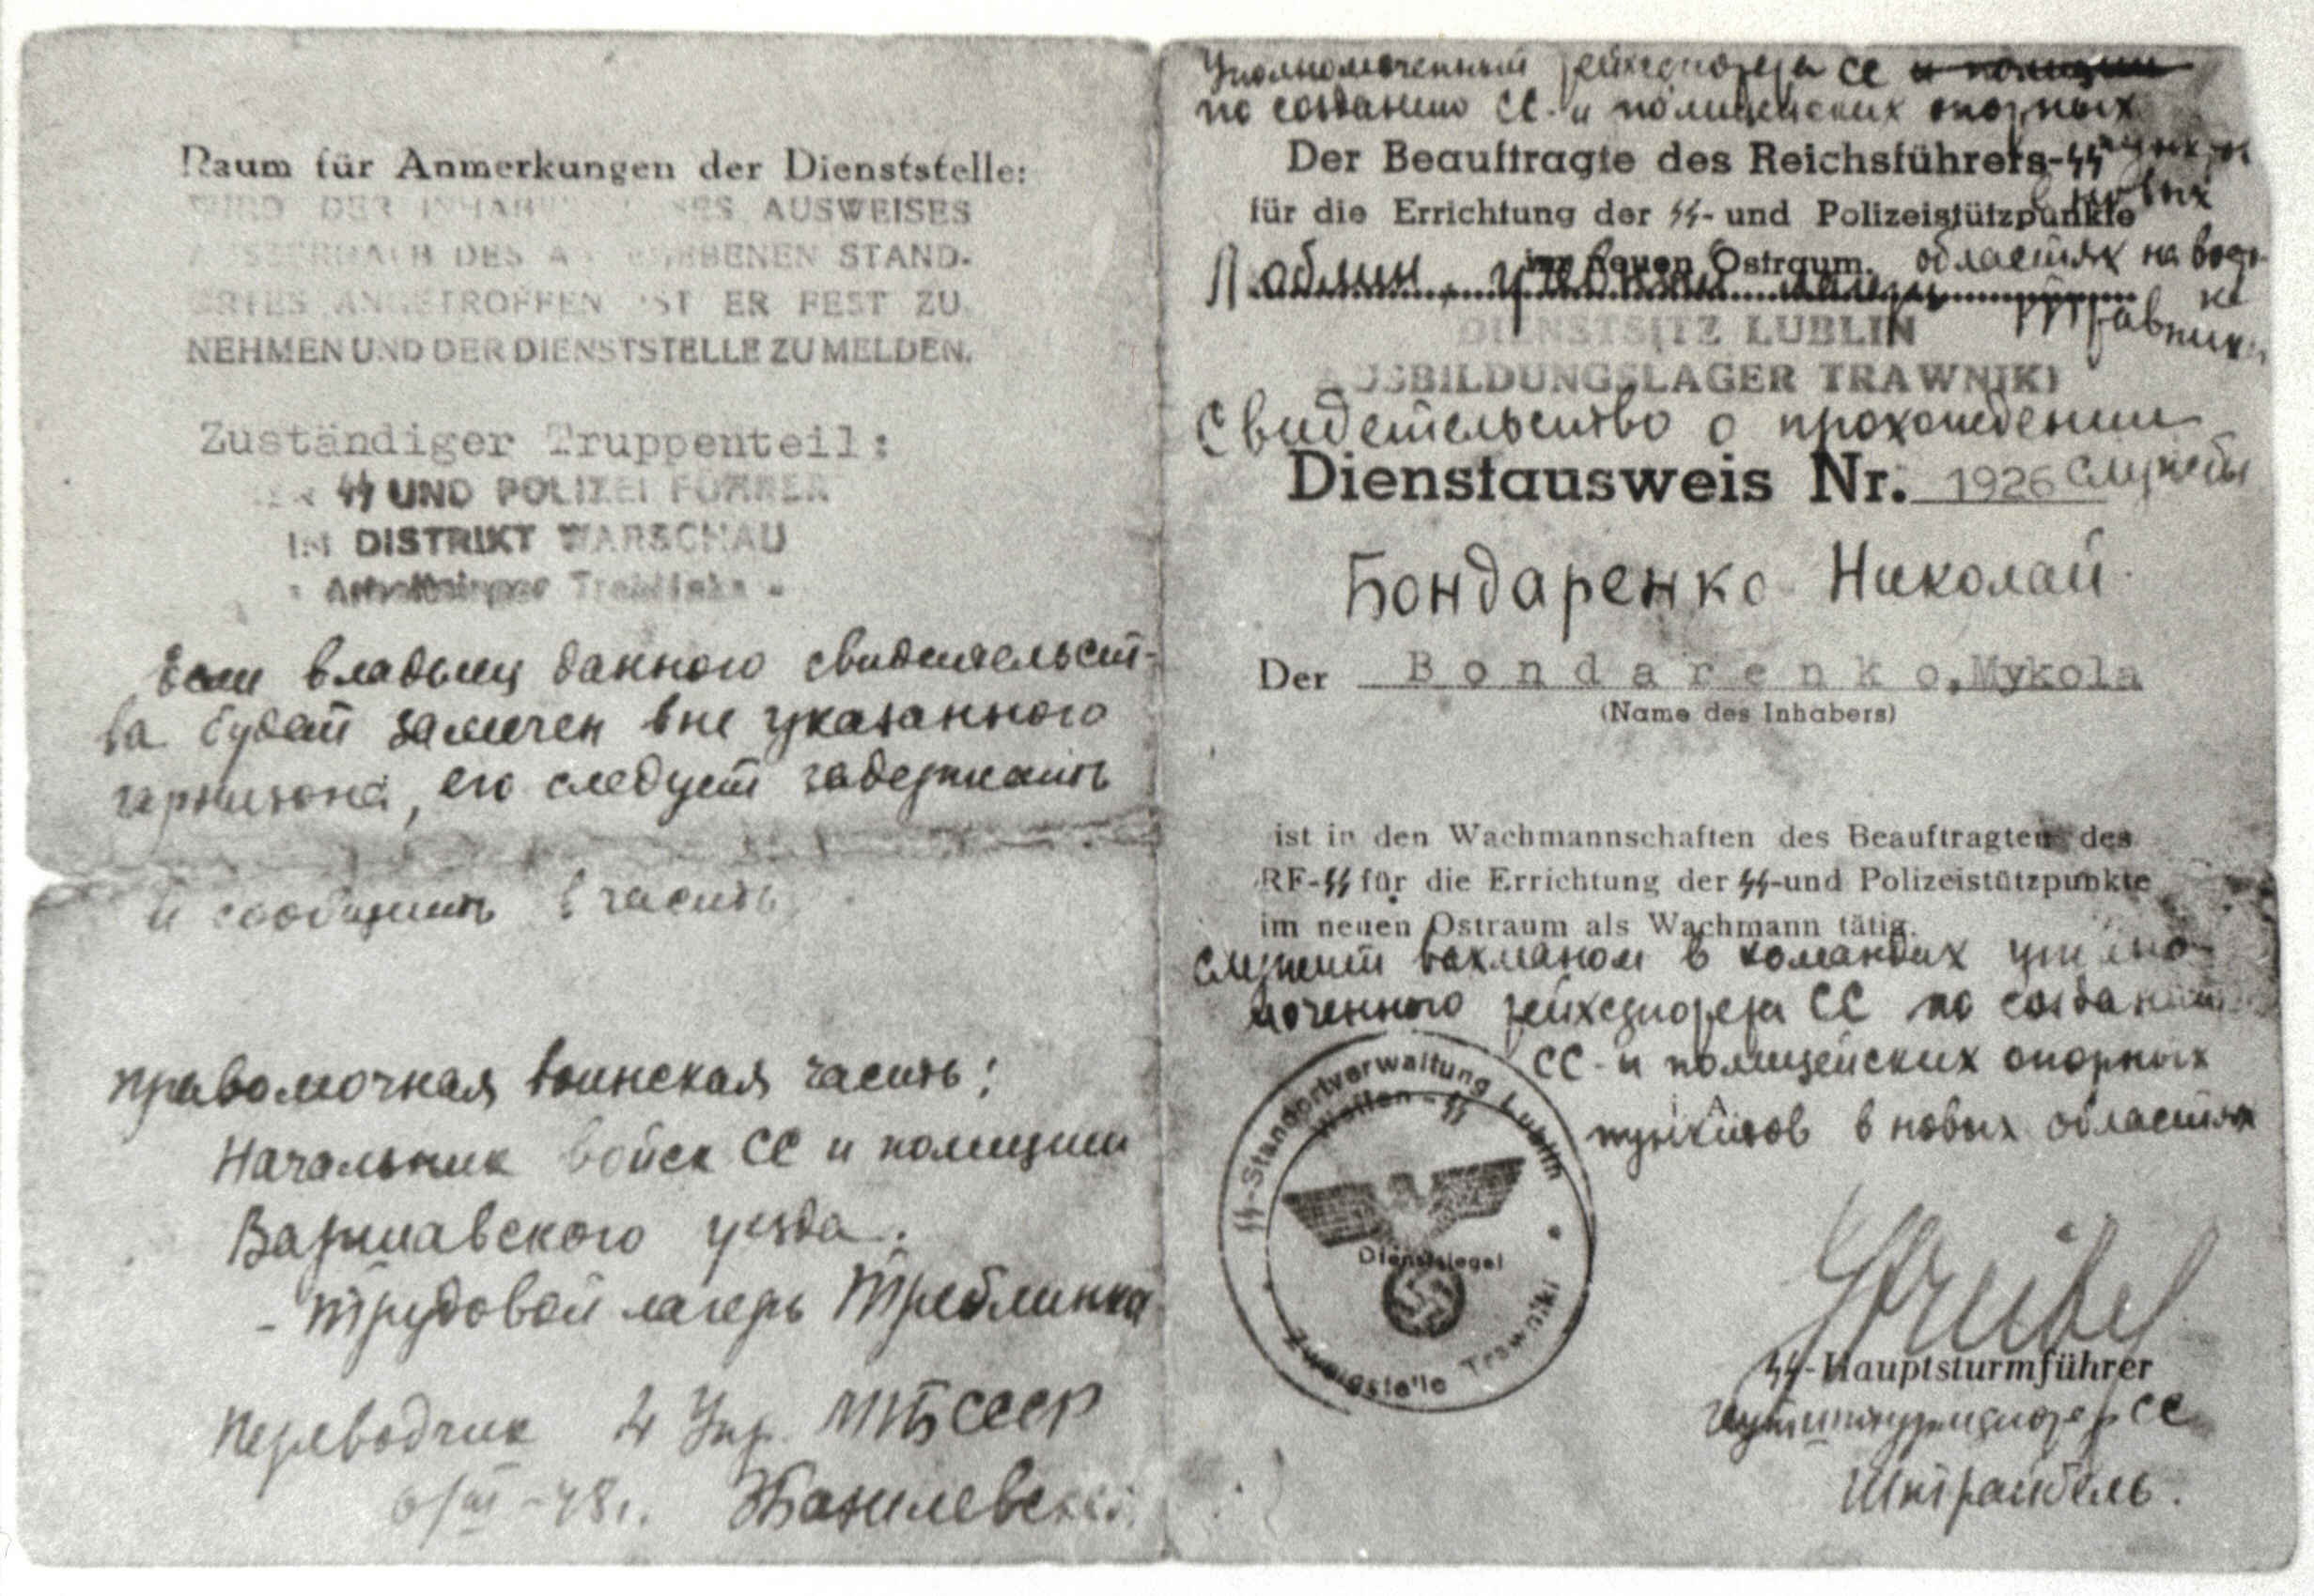 Raum für Anmerkungen der Dienststelle:
WIRD DER INHABER DIESES AUSWEISES
AUSSERHALB DES ANGEGEBENEN STAND-
ORTES ANGETROFFEN IST ER FEST ZU
NEHMEN UND DER DIENSTSTELLE ZU MELDEN.
Zuständiger Truppenteil:
DER SS UND POLIZEI FÜHRER
IM DISTRIKT WARSCHAU
- Treblinka -
Если владелец данного свидетельст-
ва будет замечен вне указанного
гарнизона, его следует задержать
и сообщить в часть
правомочная воинская часть:
Начальник войск СС и полиции
Варшавского уезда.
- Трудовой лагерь Треблинка
Переводчик 4 Упр. МГБ СССР
6/III-48г.
Уполномоченный рейхсфюрера СС и полиции
по созданию СС- и полицейских опорных
пунктов
Der Beauftragte des Reichsführers-SS
в новых
für die Errichtung der SS- und Polizeistützpunkte
im neuen Ostraum.
областях на восто-
ке
Люблин, учебный лагерь Травники
DIENSTSITZ LUBLIN
AUSBILDUNGSLAGER TRAWNIKI
Свидетельство о прохождении
службы
Dienstausweis Nr. 1926
Бондаренко Николай
Der Bondarenko, Mykola
(Name des Inhabers)
ist in den Wachmannschaften des Beauftragten des
RF-SS für die Errichtung der SS-und Polizeistützpunkte
im neuen Ostraum als Wachmann tätig.
служит вахманом в командах уполно-
моченного рейхсфюрера СС по созданию
СС- и полицейских опорных
пунктов в новых областях
SS-Standortverwaltung Lublin
Waffen-SS
Dienstsiegel
Zweigstelle Trawniki
Streibel
SS-Hauptsturmführer
гауптштурмфюрер СС
Штрайбель.